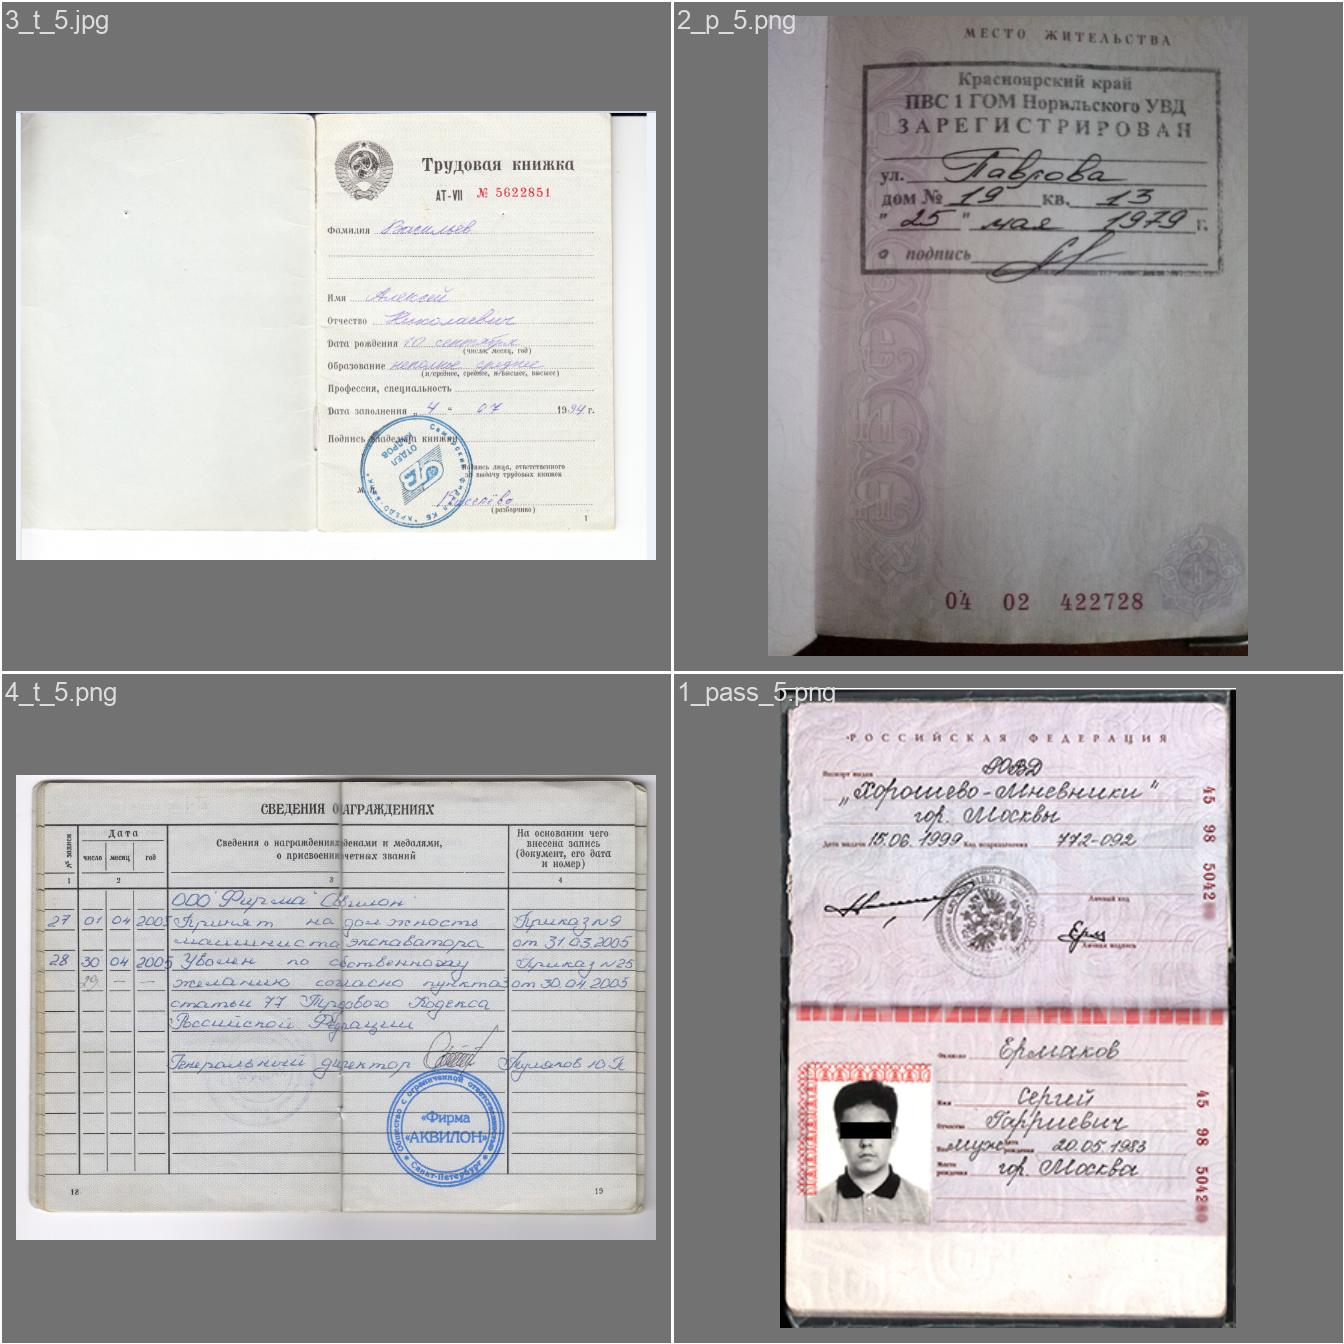 3_t_5.jpg
Трудовая книжка
АТ-VII № 5622851
Фамилия Васильев
Имя Алексей
Отчество Николаевич
Дата рождения 10 сентября
(число, месяц, год)
Образование неполное среднее
(н/среднее, среднее, н/высшее, высшее)
Профессия, специальность
Дата заполнения „ 4 “ 07 1994 г.
Подпись владельца книжки
ОТДЕЛ КАДРОВ
Подпись лица, ответственного
за выдачу трудовых книжек
(разборчиво)
1
2_p_5.png
МЕСТО ЖИТЕЛЬСТВА
Красноярский край
ПВС 1 ГОМ Норильского УВД
ЗАРЕГИСТРИРОВАН
ул. Павлова
дом № 19 кв. 13
" 25 " мая 1979 г.
подпись
04 02 422728
4_t_5.png
СВЕДЕНИЯ О НАГРАЖДЕНИЯХ
№ записи
Дата
число месяц год
Сведения о награждениях орденами и медалями,
о присвоении почетных званий
На основании чего
внесена запись
(документ, его дата
и номер)
1 2 3 4
ООО "Фирма "Аквилон"
27 01 04 2005 Принят на должность Приказ №9
машиниста экскаватора от 31.03.2005
28 30 04 2005 Уволен по собственному Приказ №25
29 — — желанию согласно пункта 3 от 30.04.2005
статьи 77 Трудового Кодекса
Российской Федерации
Генеральный директор
Общество с ограниченной ответственностью
«Фирма
«АКВИЛОН»
Санкт-Петербург
18 19
1_pass_5.png
РОССИЙСКАЯ ФЕДЕРАЦИЯ
Паспорт выдан ОВД
„Хорошево-Мневники"
гор. Москвы
Дата выдачи 15.06.1999 Код подразделения 772-092
Личный код
Личная подпись
45 98 5042
Фамилия Ермаков
Имя Сергей
Отчество Гарриевич
Пол муж Дата рождения 20.05.1983
Место рождения гор. Москва
45 98 504280